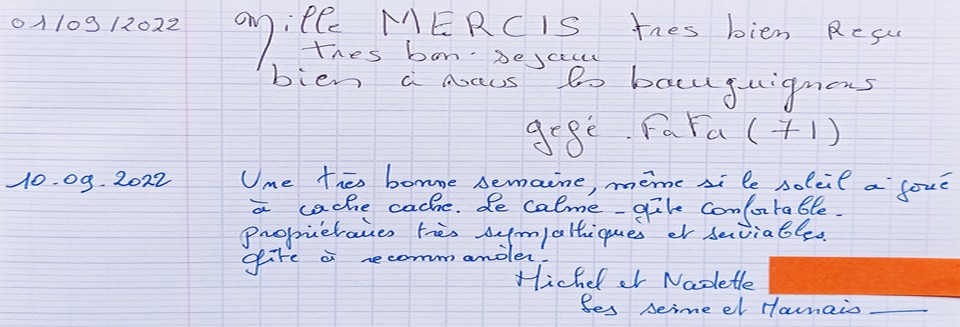 01/09/2022 Mille MERCIS tres bien Reçu
tres bon sejour
bien à vous les bourguignons
gegé . FaFa (71)
10.09.2022 Une très bonne semaine, même si le soleil a joué
à cache cache. Le calme - gîte confortable.
propriétaires très sympathiques et serviables.
gîte à recommander.
Michel et Nadette
Les seine et Marnais